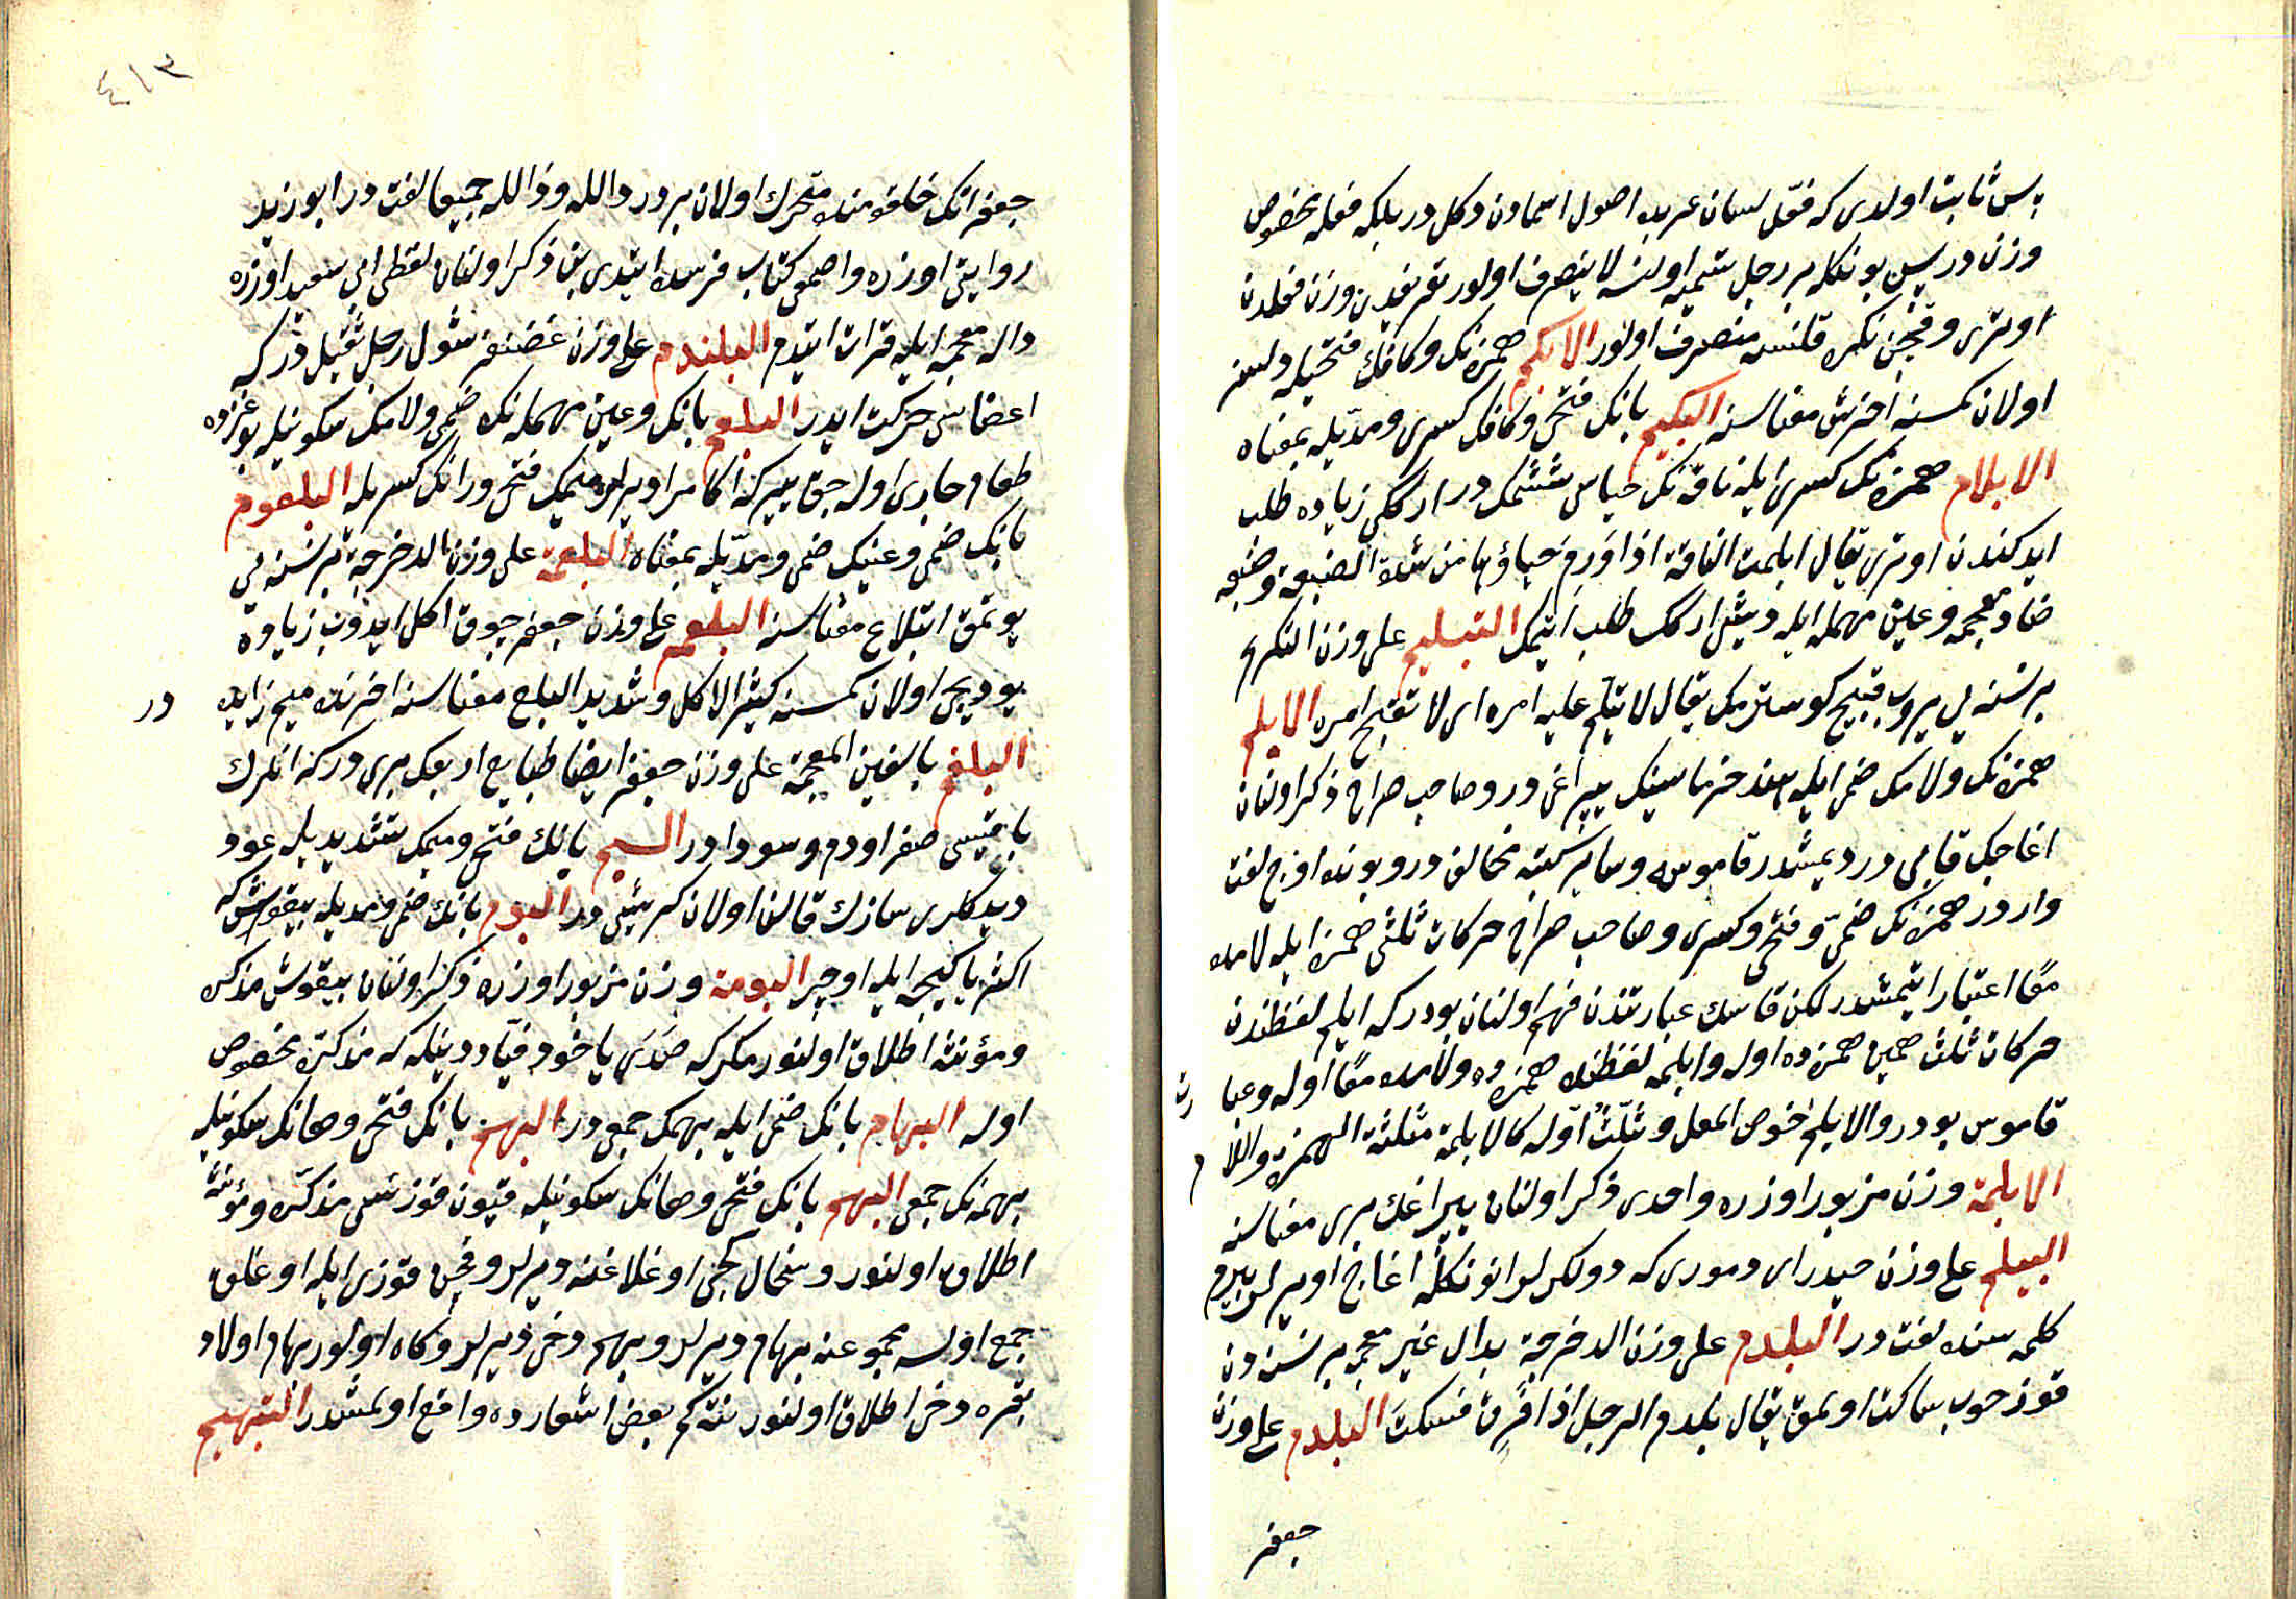 پس ثابت اولدی که فعّل لسان عربده اصول اسمادن دکل در بلکه فعله مخصوص
وزن در پس بونکله بر رجل تسمیه اولنسه لا ینصرف اولور تعریفدن وزن فعلدن
اوتری و قچن نکره قلنسه منصرف اولور الابکم همزنک و کافك فتحیله دلسز
اولان کمسنه اخرش معناسنه البکیم بانک فتحی و کافک کسری و مدّیله بمعناه
الابلام همزه نک کسری ایله ناقه نک حیاسی ششمک در ارککی زیاده طلب
ایدکندن اوتری یقال ابلمت الناقة اذا ورم حیاؤها من شدة الضبعة و ضبعه
ضاد معجمه و عین مهمله ایله دیشی ارکک طلب اتیمک التبلیم علی وزن التکریم
بر نسنه یی یروب قبیح کوسترمک یقال لا تبلّم علیه امره ای لا تقبّح امره الابلم
همزنک و لامک ضمی ایله هند خرماسینک یپراغی در و صاحب صراح ذکر اولنان
اغاجک قابی در دیمشدر قاموسه و سایر کتبه مخالف در و بونده اوچ لغت
وار در همزه نک ضمّی و فتحی و کسری و صاحب صراح حرکات ثلثی همزه ایله لامده
معًا اعتبار اتیمشدر لکن قاموسك عبارتندن فهم اولنان بودر که ابلم لفظندن
حرکات ثلث همین همزه ده اوله و ابلمه لفظنده همزه ده و لامده معًا اوله و عبارت
قاموس بودر والابلم خوص المقل و ثلّث اوّله کالابلمة مثلثة الهمزة واللام
الابلمة وزن مزبور اوزره واحدی ذکر اولنان یپراغك بری معناسنه
البیلم علی وزن حیدر ای دموری که دولکرلر انونکله اغاج اویرلر بیرم
کلمه سنده لغت در البلدم علی وزن الدخرجة بدال غیر معجمه بر نسنه دن
قورخوب ساکت اولمق یقال بلدم الرجل اذا فرق فسکت البلدم علی وزن
جعفر
٤١٣
جعفر انک حلقومنده متحرك اولان یردر دالله و ذالله جمیعا لغت در ابو زید
روایتی اوزره واصمعی کتاب فرسده ایتدی بن ذکر اولنان لفظی ابی سعید اوزره
داله معجمه ایله قراءت ایتدم البلندم علی وزن غضنفر شول رجل ثقیل در که
اعضاسی حرکت ایدر البلعم بانک و عین مهمله نک ضمی و لامک سکونیله بوغزده
طعام جاری اوله جق ییر که اکا مرا دیرلر میمک فتحی و رانک کسریله البلعوم
بانک ضمی و عینک ضمی و مدّیله بمعناه البلعمة علی وزن الدخرجة بر نسنه یی
یوتمق ابتلاع معناسنه البلعم علی وزن جعفر چوق اکل ایدوب زیاده
یودیجی اولان کمسنه کثیر الاکل و شدید البلع معناسنه اخرنده میم زایده در
البلغم بالغین المعجمة علی وزن جعفر ایضا طبایع اربعک بری در که انلرك
باقیسی صفرا و دم و سودا در البم بانك فتحی و میمک تشدیدیله عود
دیدکلری سازك قالنا اولان کریشی در البوم بانك ضمی و مدیله بیقوش که
اکثریا کیجه ایله اوچر البومة وزن مزبور اوزره ذکر اولنان بیقوش مذکره
و مؤنثه اطلاق اولنور مکر که صَدَی یاخود فیّاد دینله که مذکره مخصوص
اوله البهام بانک ضمی ایله بهمک جمعی در البهم بانک فتحی و هانک سکونیله
بهمه نک جمعی البهم بانک فتحی و هانک سکونیله قیون قوزسی مذکره و مؤنثه
اطلاق اولنور و سخال کجی اوغلاغنه دیرلر و قچن قوزی ایله اوغلق
جمع اولسه مجموعنه بهام دیرلر و بهم دخی دیرلر و کاه اولور بهام اولاد
بقره دخی اطلاق اولنور نته کم بعض اشعارده واقع اولمشدر التبهیم